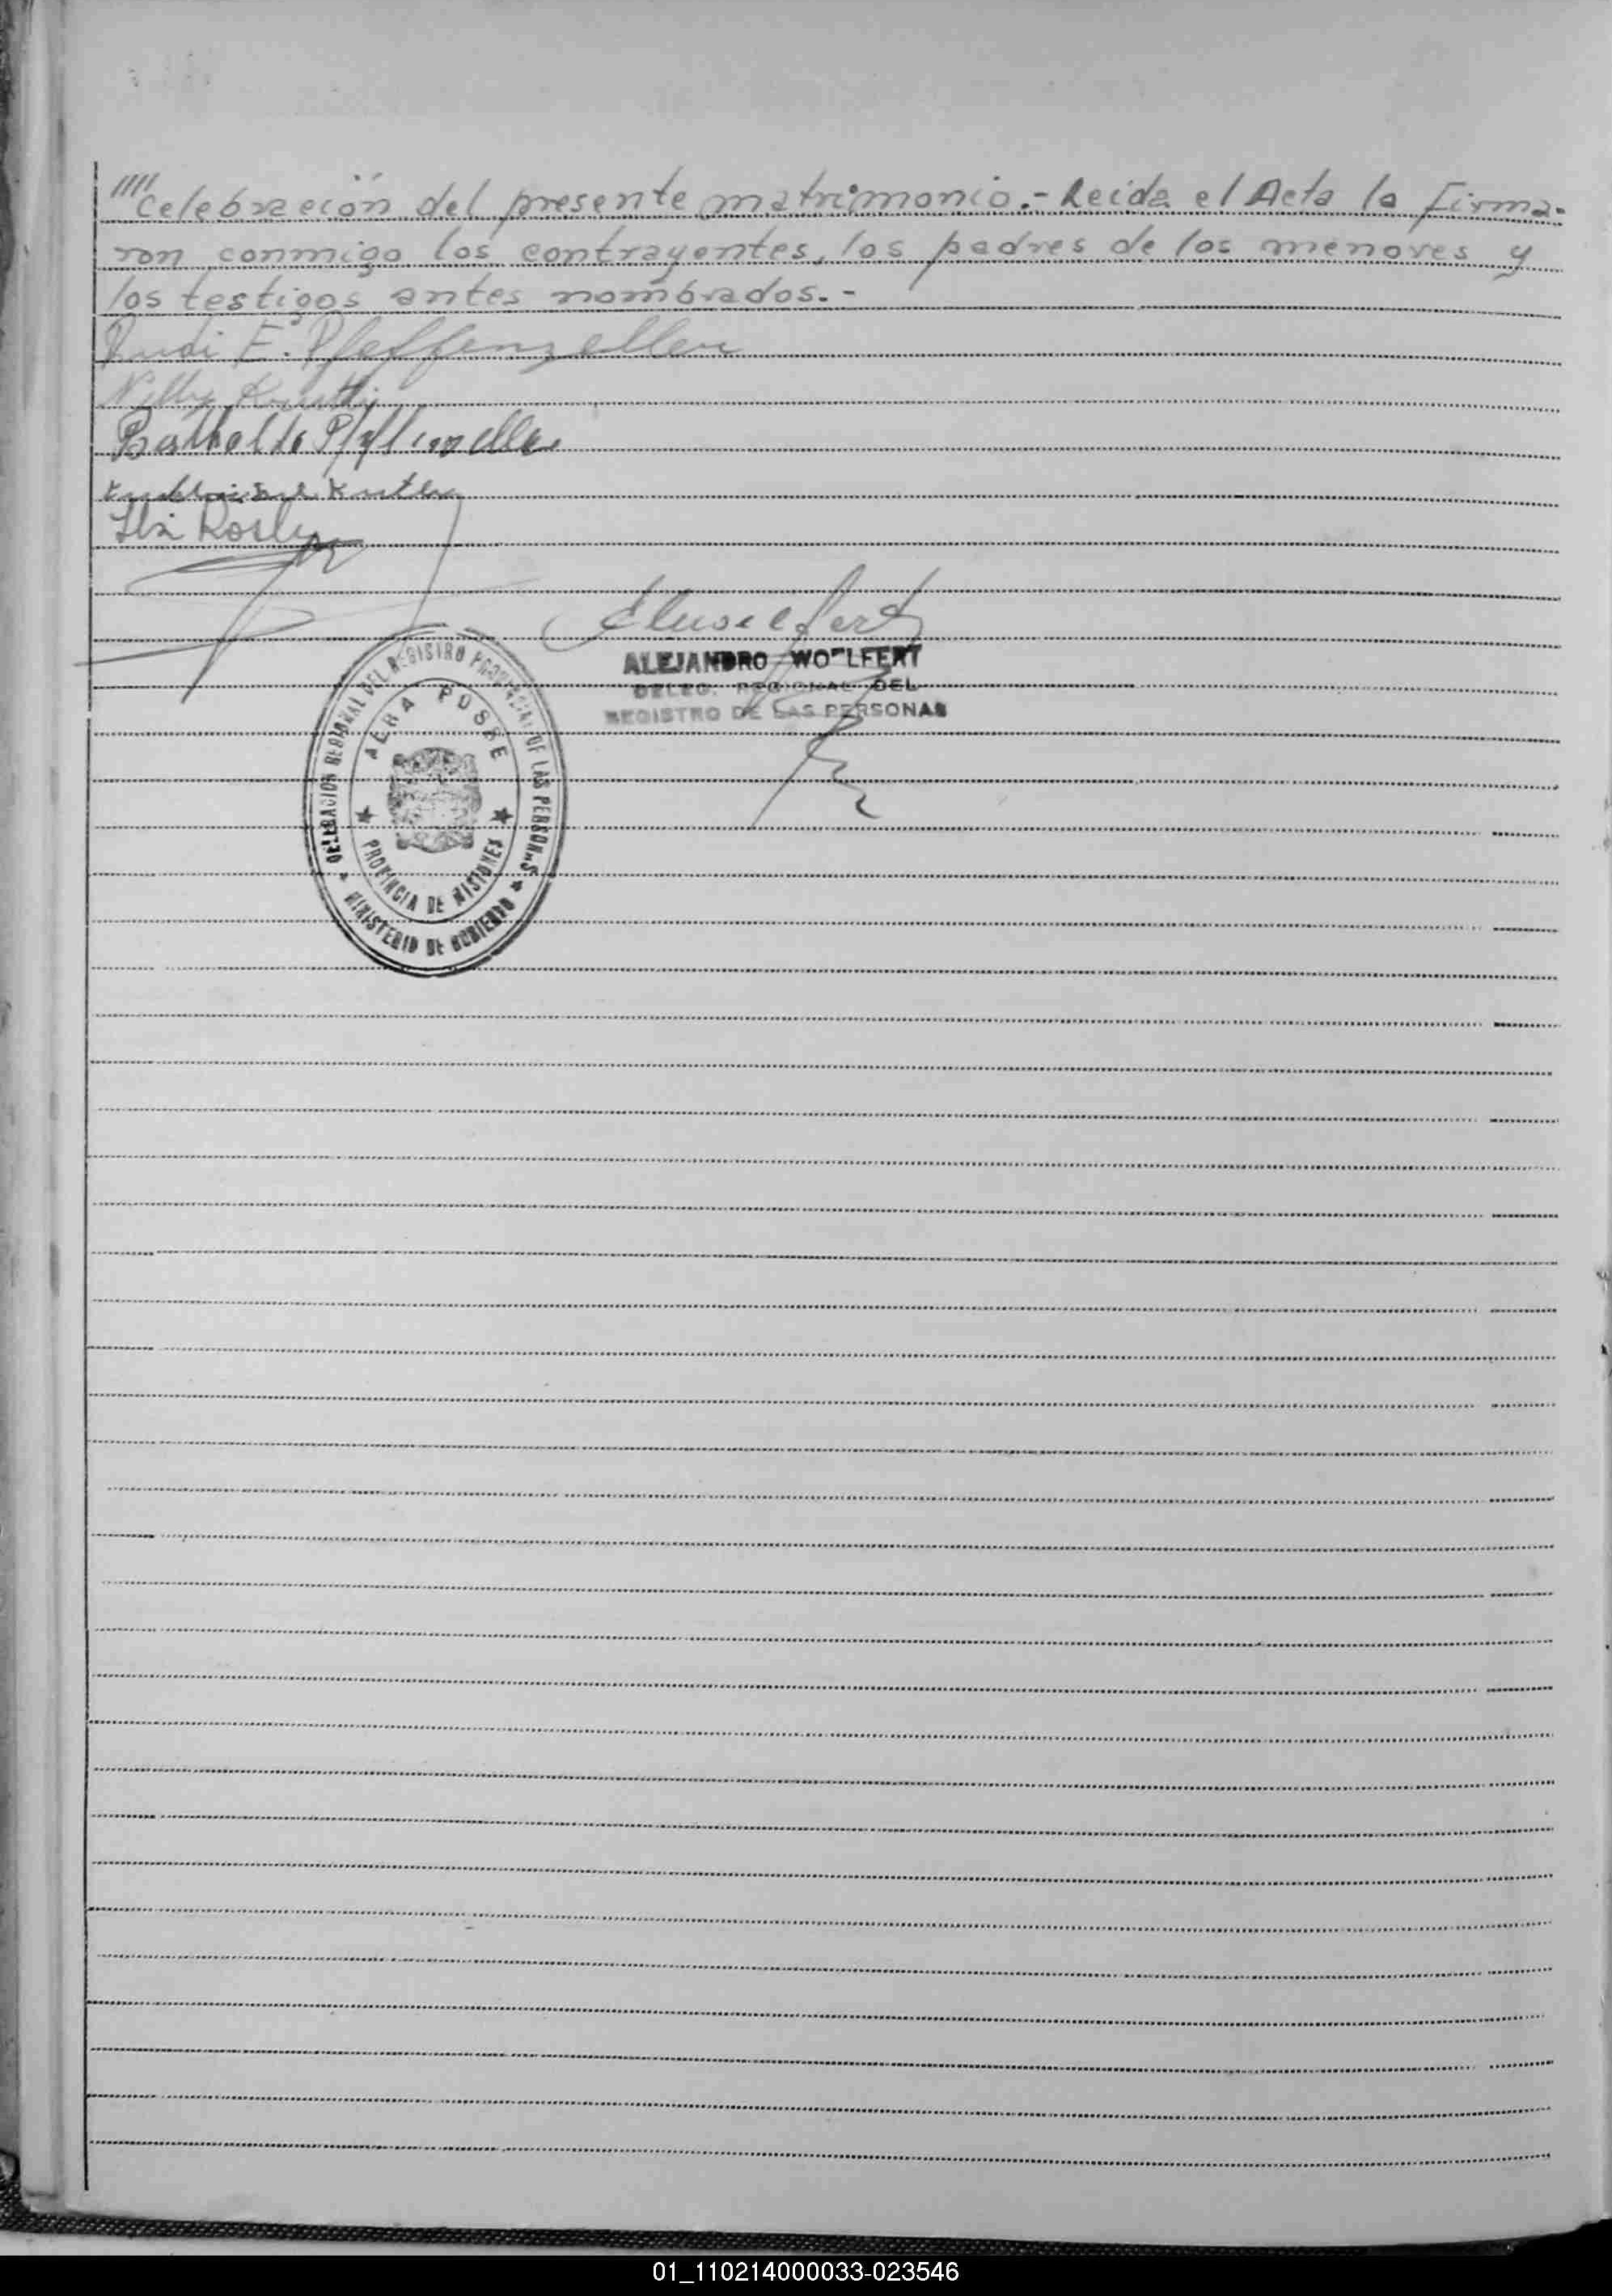 ////Celebración del presente matrimonio.- Leida el Acta la firma-
ron conmigo los contrayentes, los padres de los menores y
los testigos antes nombrados.-
Rudi E. Pfeffenzeller
Nilly
ALEJANDRO WOLFERT
DELEG. REGIONAL DEL
REGISTRO DE LAS PERSONAS
DELEGACION REGIONAL DEL REGISTRO PROVINCIAL DE LAS PERSONAS
ALBA POSSE
PROVINCIA DE MISIONES
MINISTERIO DE GOBIERNO
01_110214000033-023546